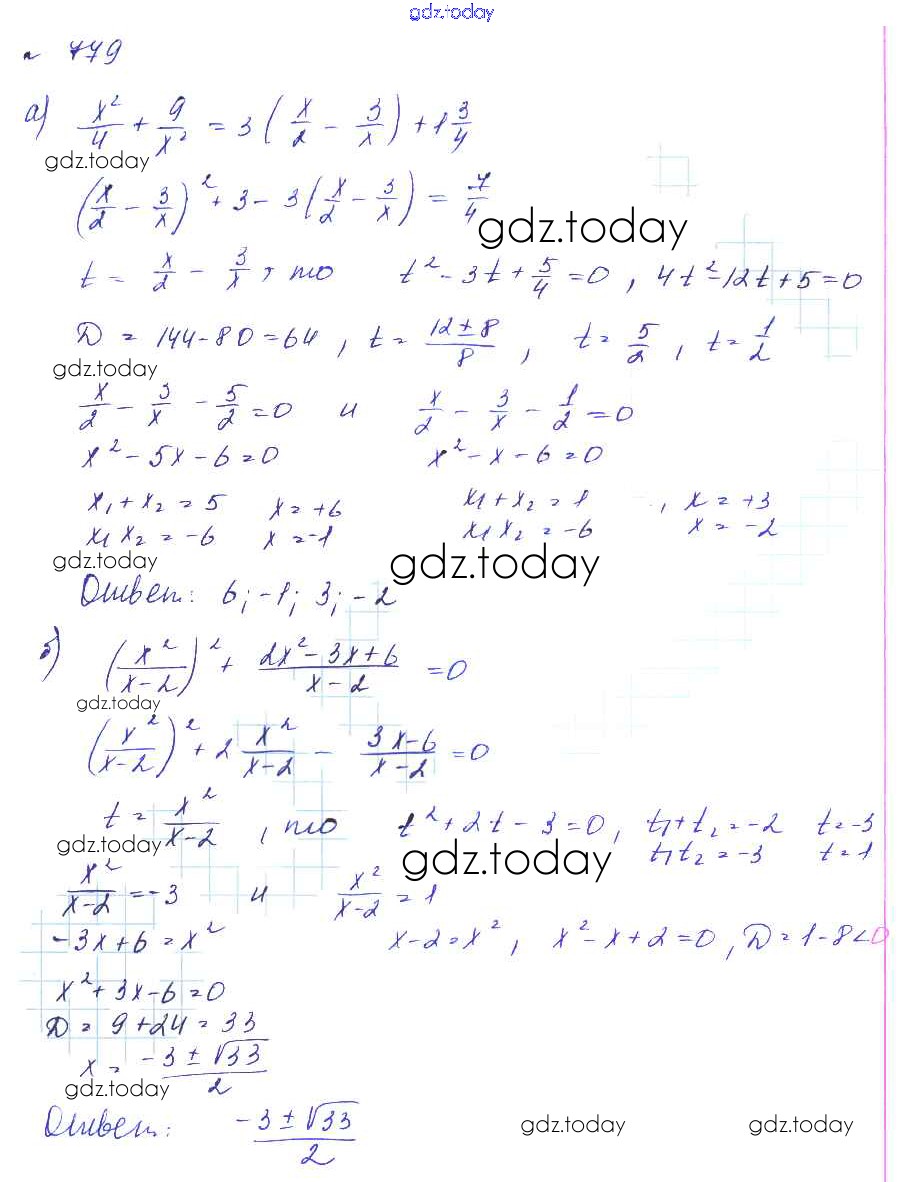 gdz.today
n 779
а) x²/4 + 9/x² = 3(x/2 − 3/x) + 1 3/4
gdz.today
(x/2 − 3/x)² + 3 − 3(x/2 − 3/x) = 7/4
gdz.today
t = x/2 − 3/x, то t² − 3t + 5/4 = 0, 4t² − 12t + 5 = 0
D = 144 − 80 = 64, t = (12 ± 8)/8, t = 5/2, t = 1/2
gdz.today
x/2 − 3/x − 5/2 = 0 и x/2 − 3/x − 1/2 = 0
x² − 5x − 6 = 0 x² − x − 6 = 0
x₁ + x₂ = 5 x = +6 x₁ + x₂ = 1, x = +3
x₁ x₂ = −6 x = −1 x₁ x₂ = −6 x = −2
gdz.today gdz.today
Ответ: 6; −1; 3; −2
б) (x²/(x−2))² + (2x² − 3x + 6)/(x − 2) = 0
gdz.today
(x²/(x−2))² + 2 x²/(x−2) − (3x−6)/(x−2) = 0
t = x²/(x−2), то t² + 2t − 3 = 0, t₁ + t₂ = −2 t = −3
gdz.today gdz.today t₁ t₂ = −3 t = 1
x²/(x−2) = −3 и x²/(x−2) = 1
−3x + 6 = x² x − 2 = x², x² − x + 2 = 0, D = 1 − 8 < 0
x² + 3x − 6 = 0
D = 9 + 24 = 33
x = (−3 ± √33)/2
gdz.today
Ответ: (−3 ± √33)/2
gdz.today gdz.today